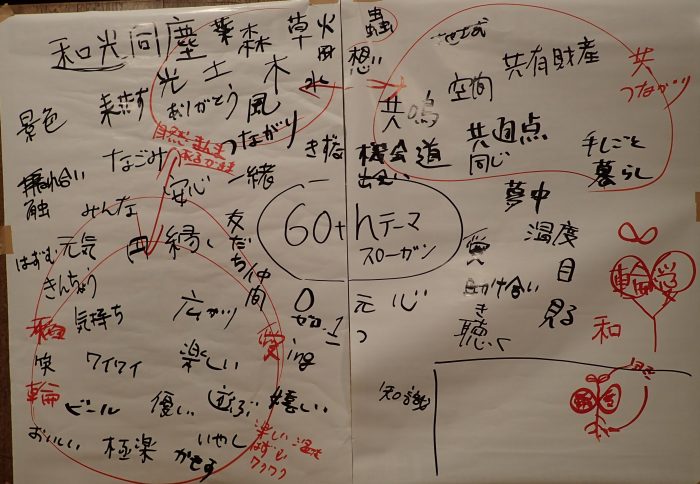 和光同塵
葉 森 草 火
田
水
光 土 木
来たす ありがとう 風
景色
自然 まんま
あるがまま
つながり
なごみ
きずな
触れ合い
触
みんな
安心 一緒
縁
友だち
仲間
はずむ 元気
きんちょう
気持ち
広がり
0
ゼロ
1
和
笑 ワイワイ 楽しい
愛 ing
輪
ビール 優しい 遊ぶ 嬉しい
おいしい 極楽 いやし
楽しい 温度
はずむ
ワクワク
60thテーマ
スローガン
蟲
想い
地域
空間 共有財産
共
つながり
共鳴
機会 道
出会い
共通点
同じ
手しごと
暮らし
夢中
愛 温度
助け合い 目
き
聴く 見る
元 心
つ
∞
輪 愛
和
知識